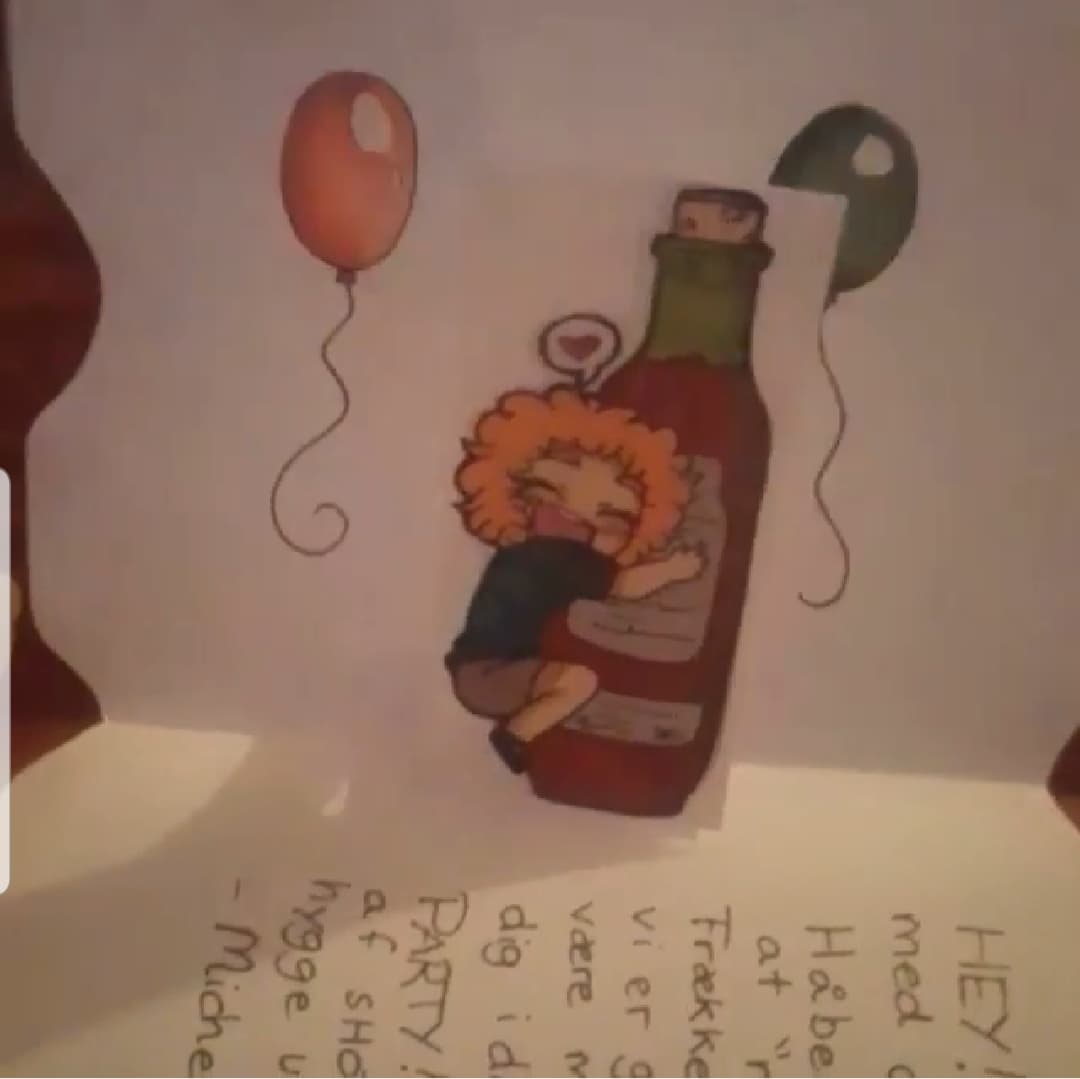 HEY!
med
Håbe
at "r
Frække
vi er g
være m
dig i d
PARTY!
af SHO
hygge v
- Miche